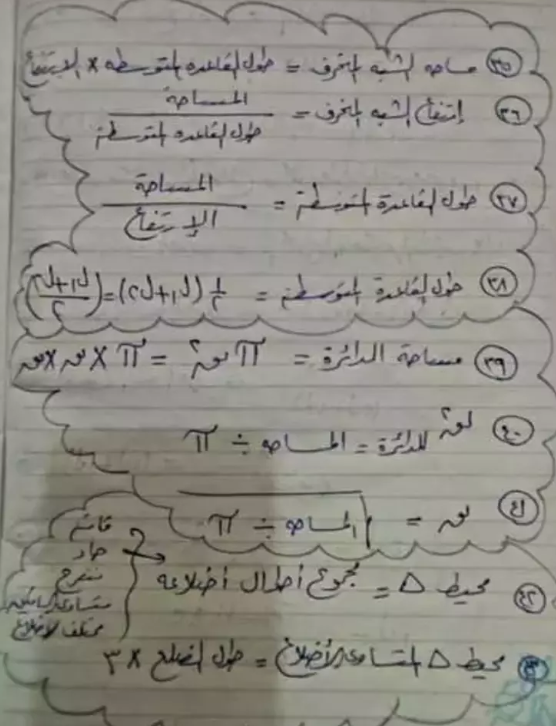 ٣٥ مساحه الشبه المنحرف = طول القاعده المتوسطه × الإرتفاع
٣٦ إرتفاع الشبه المنحرف = المساحة / طول القاعده المتوسطة
٣٧ طول القاعدة المتوسطة = المساحة / الإرتفاع
٣٨ طول القاعدة المتوسطة = ١/٢ (ل١+ل٢) = (ل١+ل٢ / ٢)
٣٩ مساحة الدائرة = π نق٢ = π × نق × نق
٤٠ نق٢ للدائرة = المساحه ÷ π
٤١ نق = √المساحه ÷ π
٤٢ محيط △ = مجموع أطوال أضلاعه
قائم
حاد
منفرج
متساوى الساقين
مختلف الأضلاع
٤٣ محيط △ المتساوى الأضلاع = طول الضلع × ٣